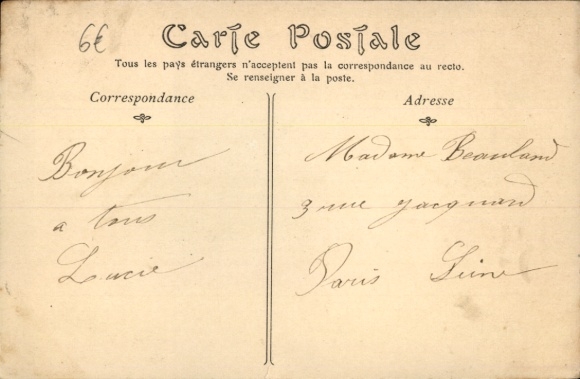 6€
Carte Postale
Tous les pays étrangers n'acceptent pas la correspondance au recto.
Se renseigner à la poste.
Correspondance
Bonjour
a tous
Lucie
Adresse
Madame Beauland
3 rue Jacquard
Paris Seine